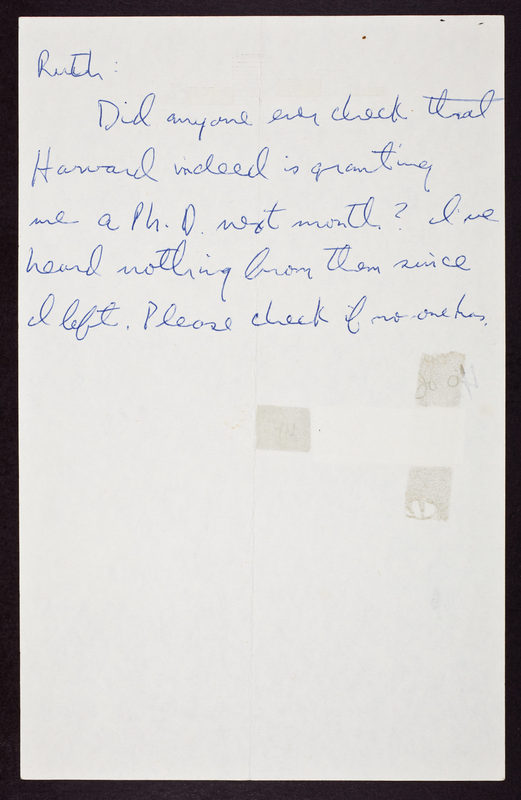 Ruth:
Did anyone ever check that
Harvard indeed is granting
me a Ph. D. next month? I've
heard nothing from them since
I left. Please check if no one has.